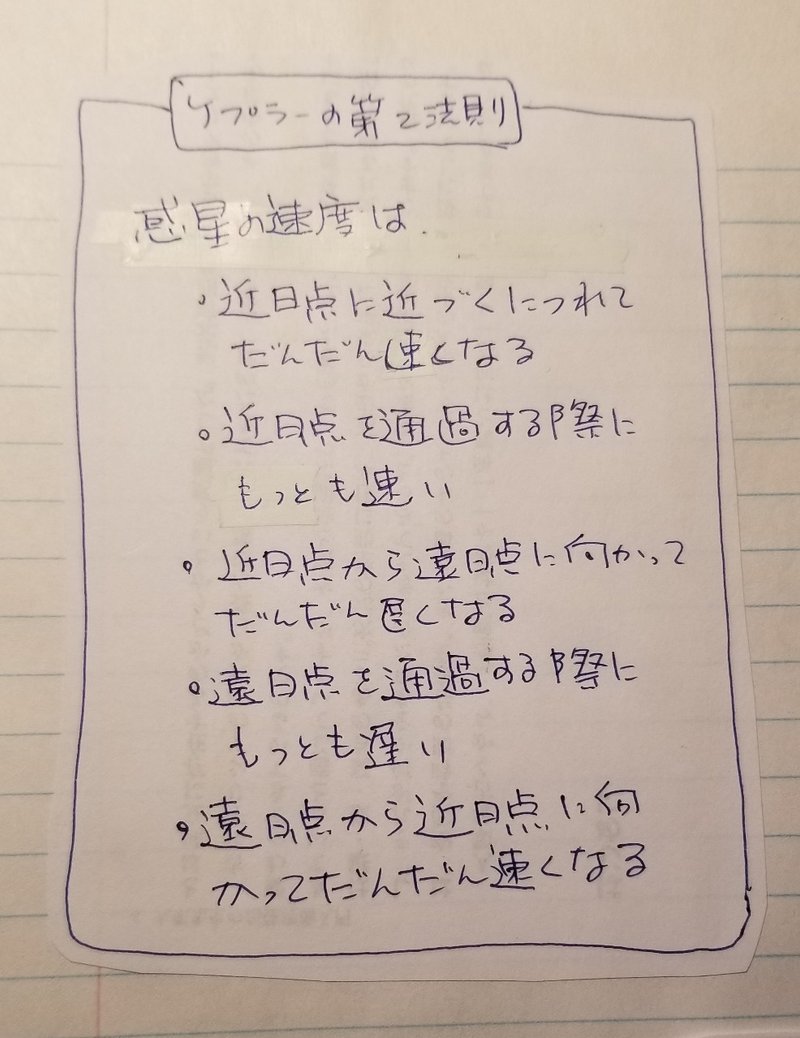 ケプラーの第2法則
惑星の速度は.
・近日点に近づくにつれて
だんだん速くなる
・近日点を通過する際に
もっとも速い
・近日点から遠日点に向かって
だんだん遅くなる
・遠日点を通過する際に
もっとも遅い
・遠日点から近日点に向
かってだんだん速くなる